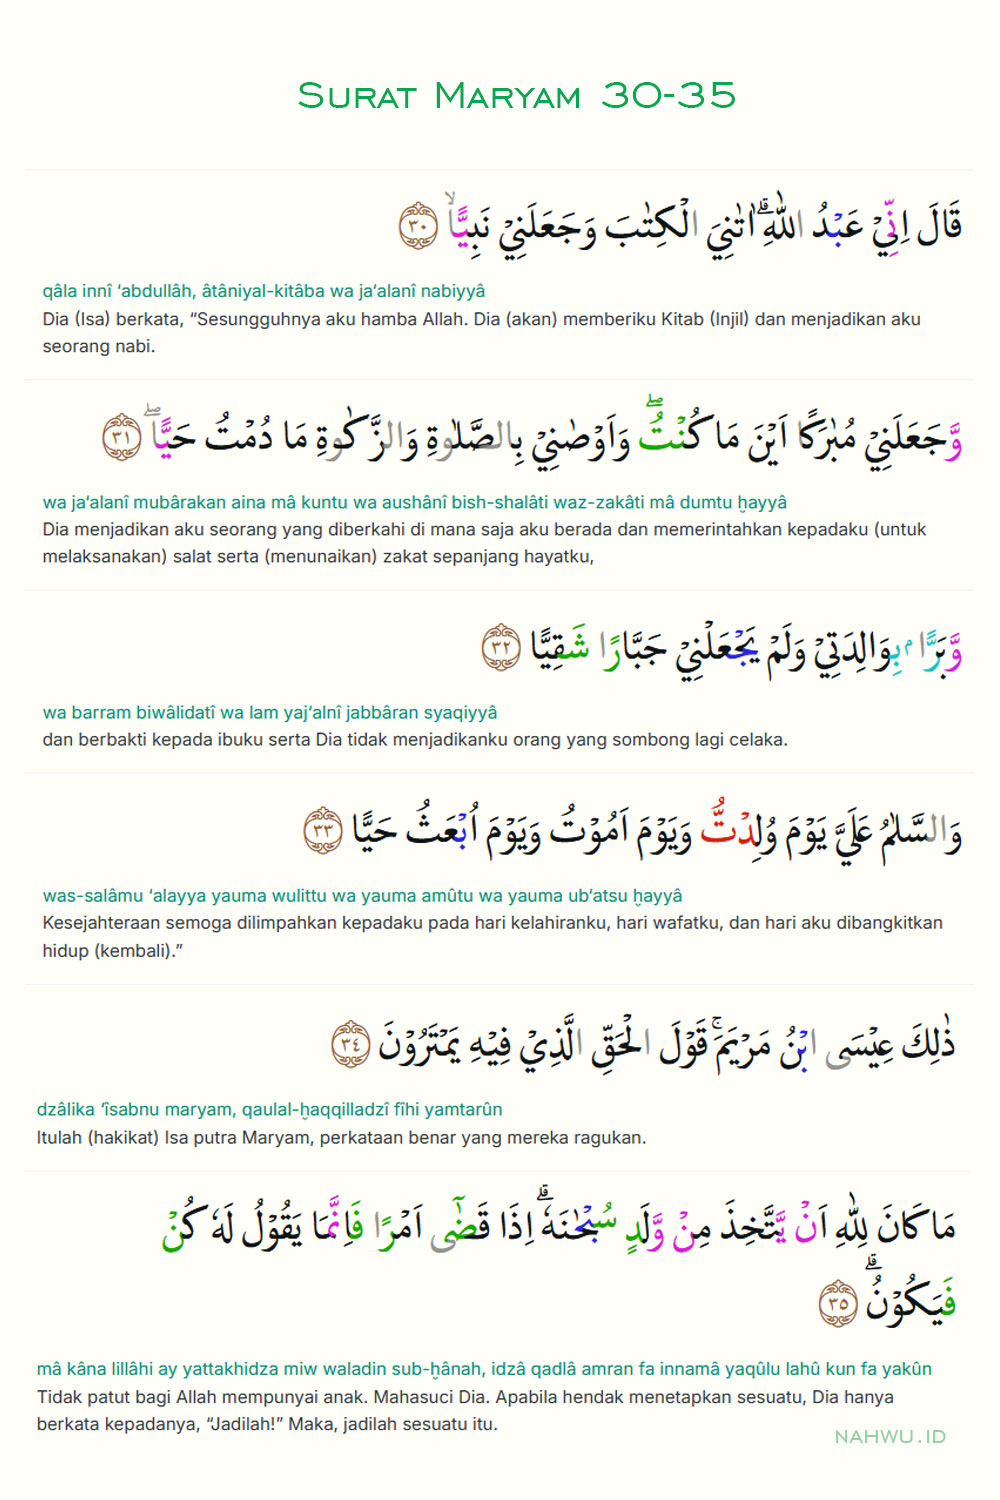 Surat Maryam 30-35
قَالَ اِنِّيْ عَبْدُ اللّٰهِ ۗاٰتٰنِيَ الْكِتٰبَ وَجَعَلَنِيْ نَبِيًّا ۙ ٣٠
qâla innî ‘abdullâh, âtâniyal-kitâba wa ja‘alanî nabiyyâ
Dia (Isa) berkata, “Sesungguhnya aku hamba Allah. Dia (akan) memberiku Kitab (Injil) dan menjadikan aku
seorang nabi.
وَّجَعَلَنِيْ مُبٰرَكًا اَيْنَ مَا كُنْتُۖ وَاَوْصٰنِيْ بِالصَّلٰوةِ وَالزَّكٰوةِ مَا دُمْتُ حَيًّا ۖ ٣١
wa ja‘alanî mubârakan aina mâ kuntu wa aushânî bish-shalâti waz-zakâti mâ dumtu ḫayyâ
Dia menjadikan aku seorang yang diberkahi di mana saja aku berada dan memerintahkan kepadaku (untuk
melaksanakan) salat serta (menunaikan) zakat sepanjang hayatku,
وَّبَرًّا ۢبِوَالِدَتِيْ وَلَمْ يَجْعَلْنِيْ جَبَّارًا شَقِيًّا ٣٢
wa barram biwâlidatî wa lam yaj‘alnî jabbâran syaqiyyâ
dan berbakti kepada ibuku serta Dia tidak menjadikanku orang yang sombong lagi celaka.
وَالسَّلٰمُ عَلَيَّ يَوْمَ وُلِدْتُّ وَيَوْمَ اَمُوْتُ وَيَوْمَ اُبْعَثُ حَيًّا ٣٣
was-salâmu ‘alayya yauma wulittu wa yauma amûtu wa yauma ub‘atsu ḫayyâ
Kesejahteraan semoga dilimpahkan kepadaku pada hari kelahiranku, hari wafatku, dan hari aku dibangkitkan
hidup (kembali).”
ذٰلِكَ عِيْسَى ابْنُ مَرْيَمَ ۚقَوْلَ الْحَقِّ الَّذِيْ فِيْهِ يَمْتَرُوْنَ ٣٤
dzâlika ‘îsabnu maryam, qaulal-ḫaqqilladzî fîhi yamtarûn
Itulah (hakikat) Isa putra Maryam, perkataan benar yang mereka ragukan.
مَا كَانَ لِلّٰهِ اَنْ يَّتَّخِذَ مِنْ وَّلَدٍ سُبْحٰنَهٗ ۗاِذَا قَضٰٓى اَمْرًا فَاِنَّمَا يَقُوْلُ لَهٗ كُنْ
فَيَكُوْنُ ۗ ٣٥
mâ kâna lillâhi ay yattakhidza miw waladin sub-ḫânah, idzâ qadlâ amran fa innamâ yaqûlu lahû kun fa yakûn
Tidak patut bagi Allah mempunyai anak. Mahasuci Dia. Apabila hendak menetapkan sesuatu, Dia hanya
berkata kepadanya, “Jadilah!” Maka, jadilah sesuatu itu.
NAHWU.ID